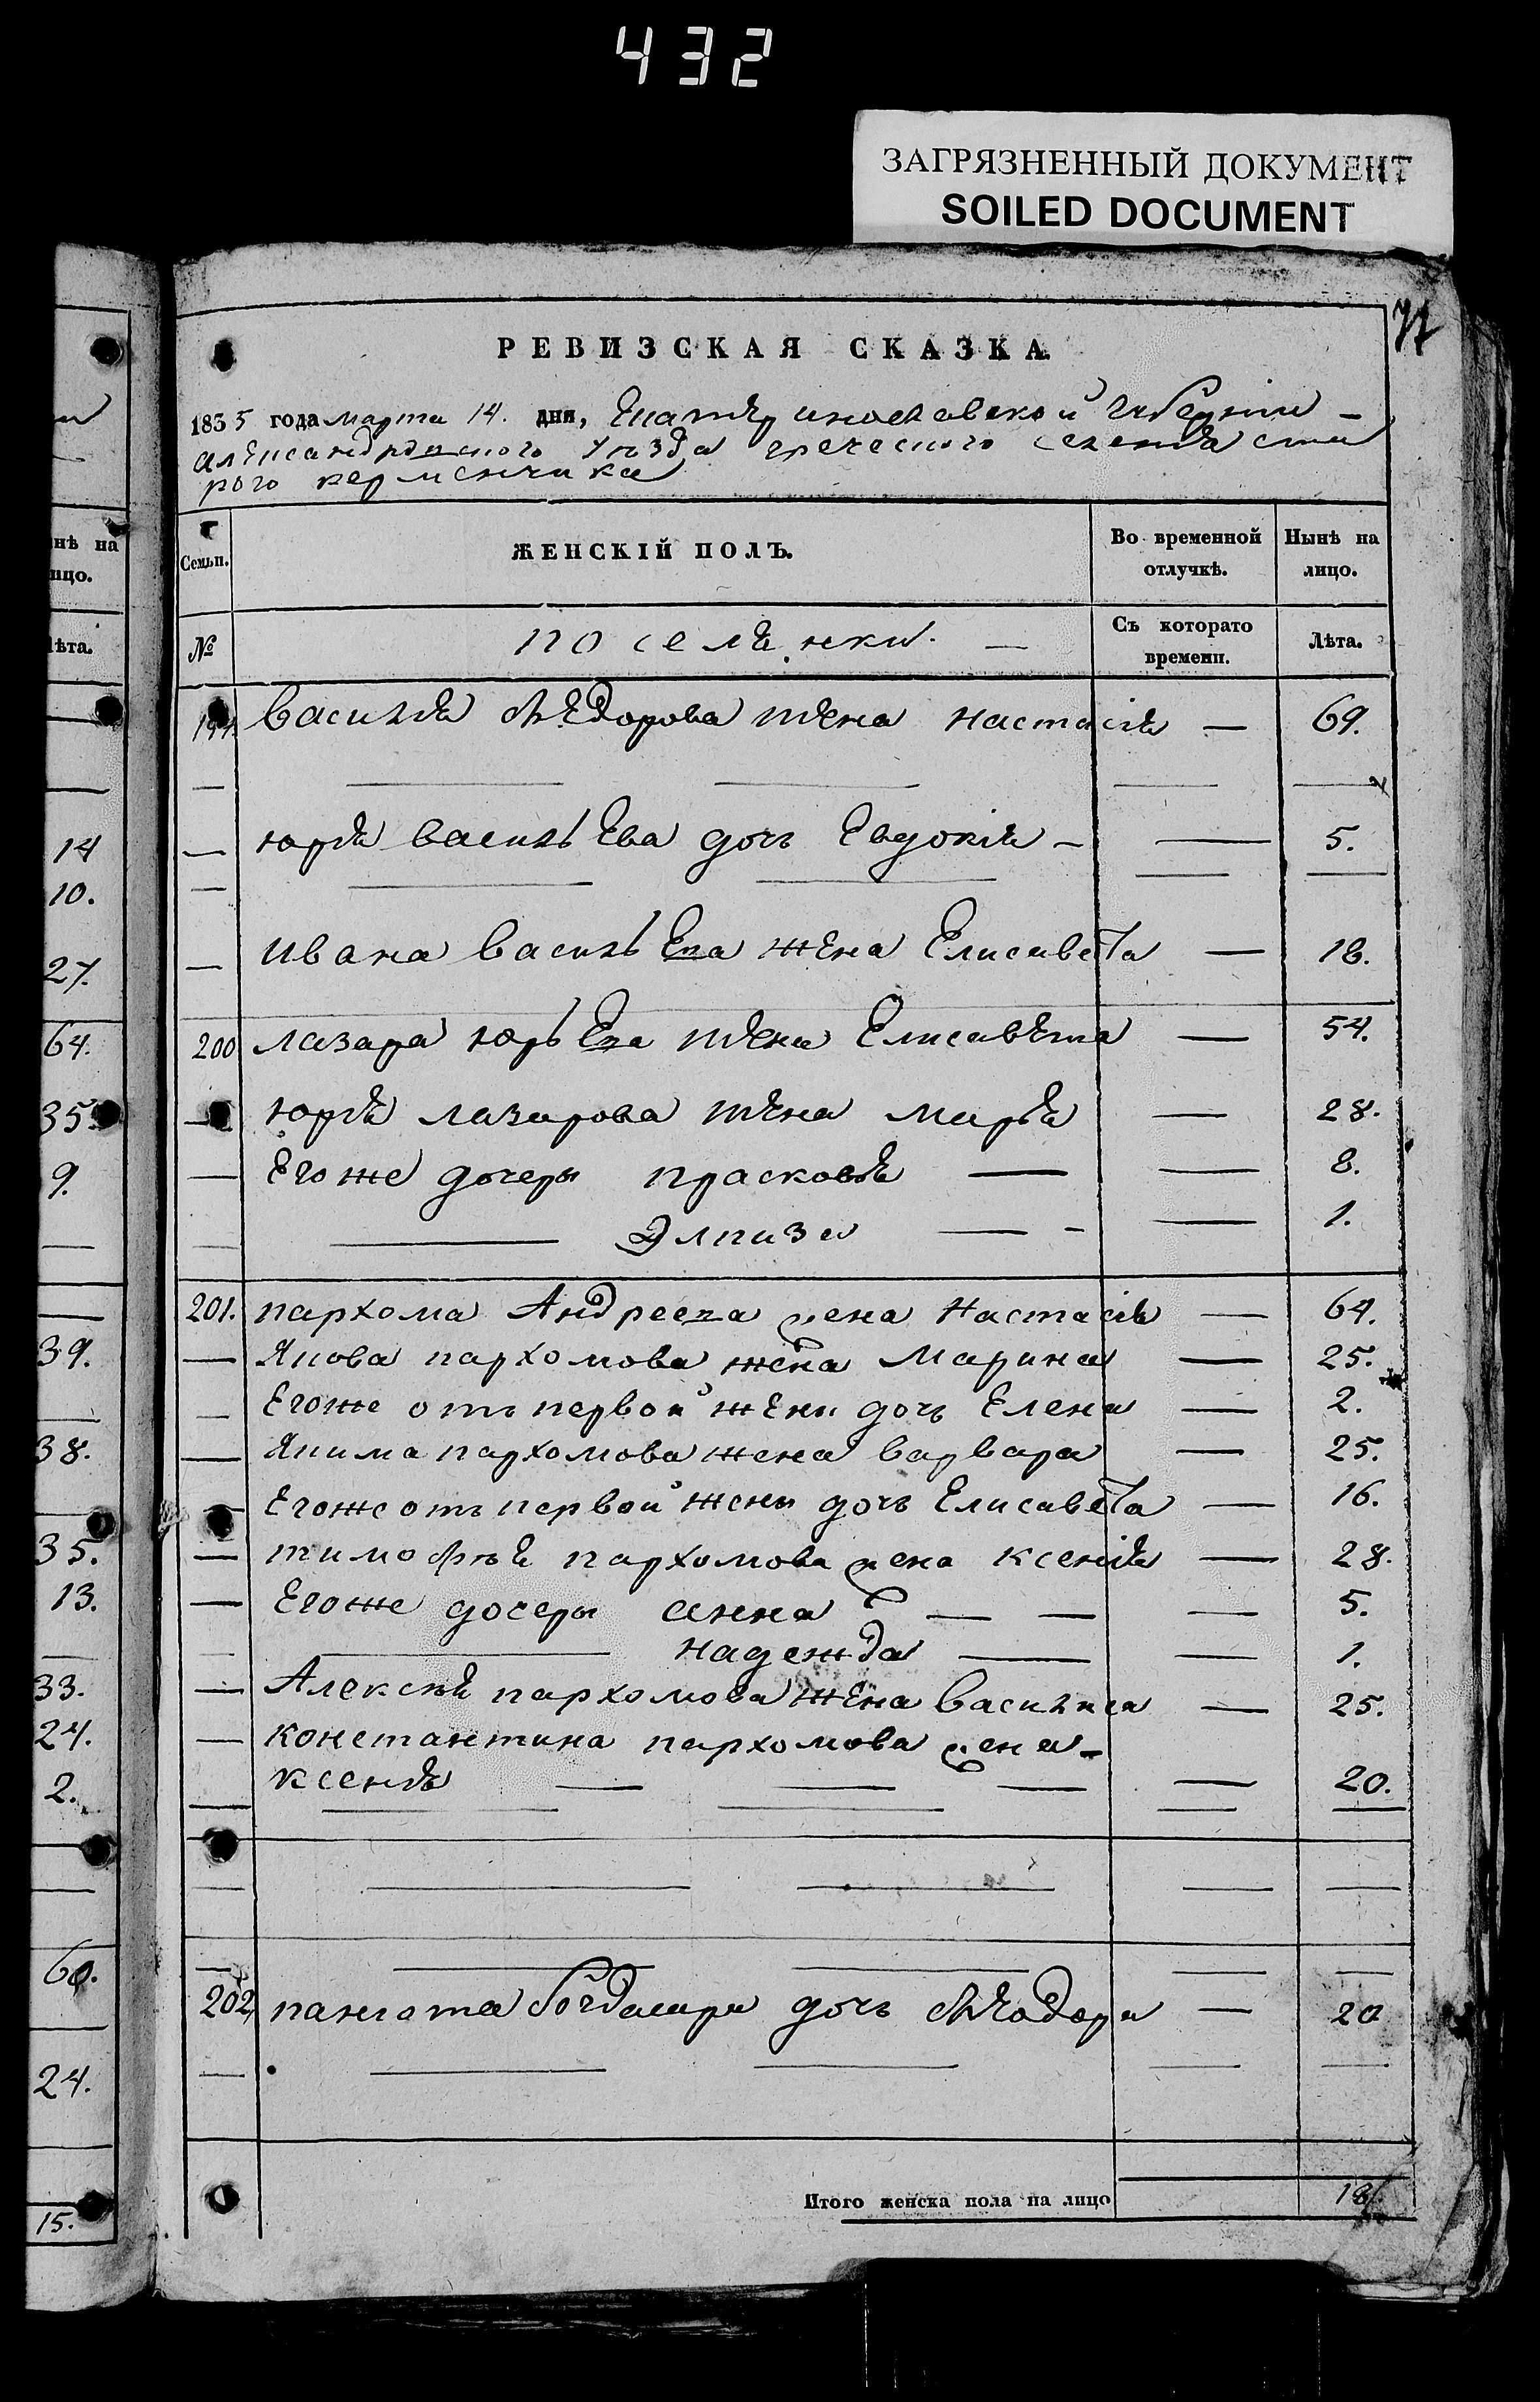 432
ЗАГРЯЗНЕННЫЙ ДОКУМЕНТ
SOILED DOCUMENT
77
РЕВИЗСКАЯ СКАЗКА.
1835 года марта 14. дня, Екатеринославской Губернии –
александровского уезда греческого селения ста
рого керменчика
Семьи.
ЖЕНСКІЙ ПОЛЪ.
Во временной отлучкѣ.
Нынѣ на лицо.
№
поселянки. —
Съ которато времени.
Лѣта.
Василія Ѳедорова жена настасія — 69.
— юрія васильева дочь Евдокія – — 5.
— ивана васильева жена Елисавета — 18.
200 лазара юрьева жена Елисавета — 54.
— юрія лазарова жена марія — 28.
— Егоже дочери прасковія — — 8.
— Элпиза — - — 1.
201. пархома Андреева жена Настасія — 64.
— Якова пархомова жена Марина — 25.
— Егоже отъ первой жены дочь Елена — 2.
— Якима пархомова жена варвара — 25.
— Егоже отъ первой жены дочь Елисавета — 16.
— тимофѣя пархомова жена ксенія — 28.
— Егоже дочери анна — — — 5.
— надежда — — 1.
— Алексѣя пархомова жена василиса — 25.
— константина пархомова жена -
ксенія — — — — 20.
202, панюта дочь Ѳеодора — 20
Итого женска пола на лицо 18.
нѣ на
ицо.
ѣта.
14
10.
27.
64.
35.
9.
39.
38.
35.
13.
33.
24.
2.
60.
24.
15.